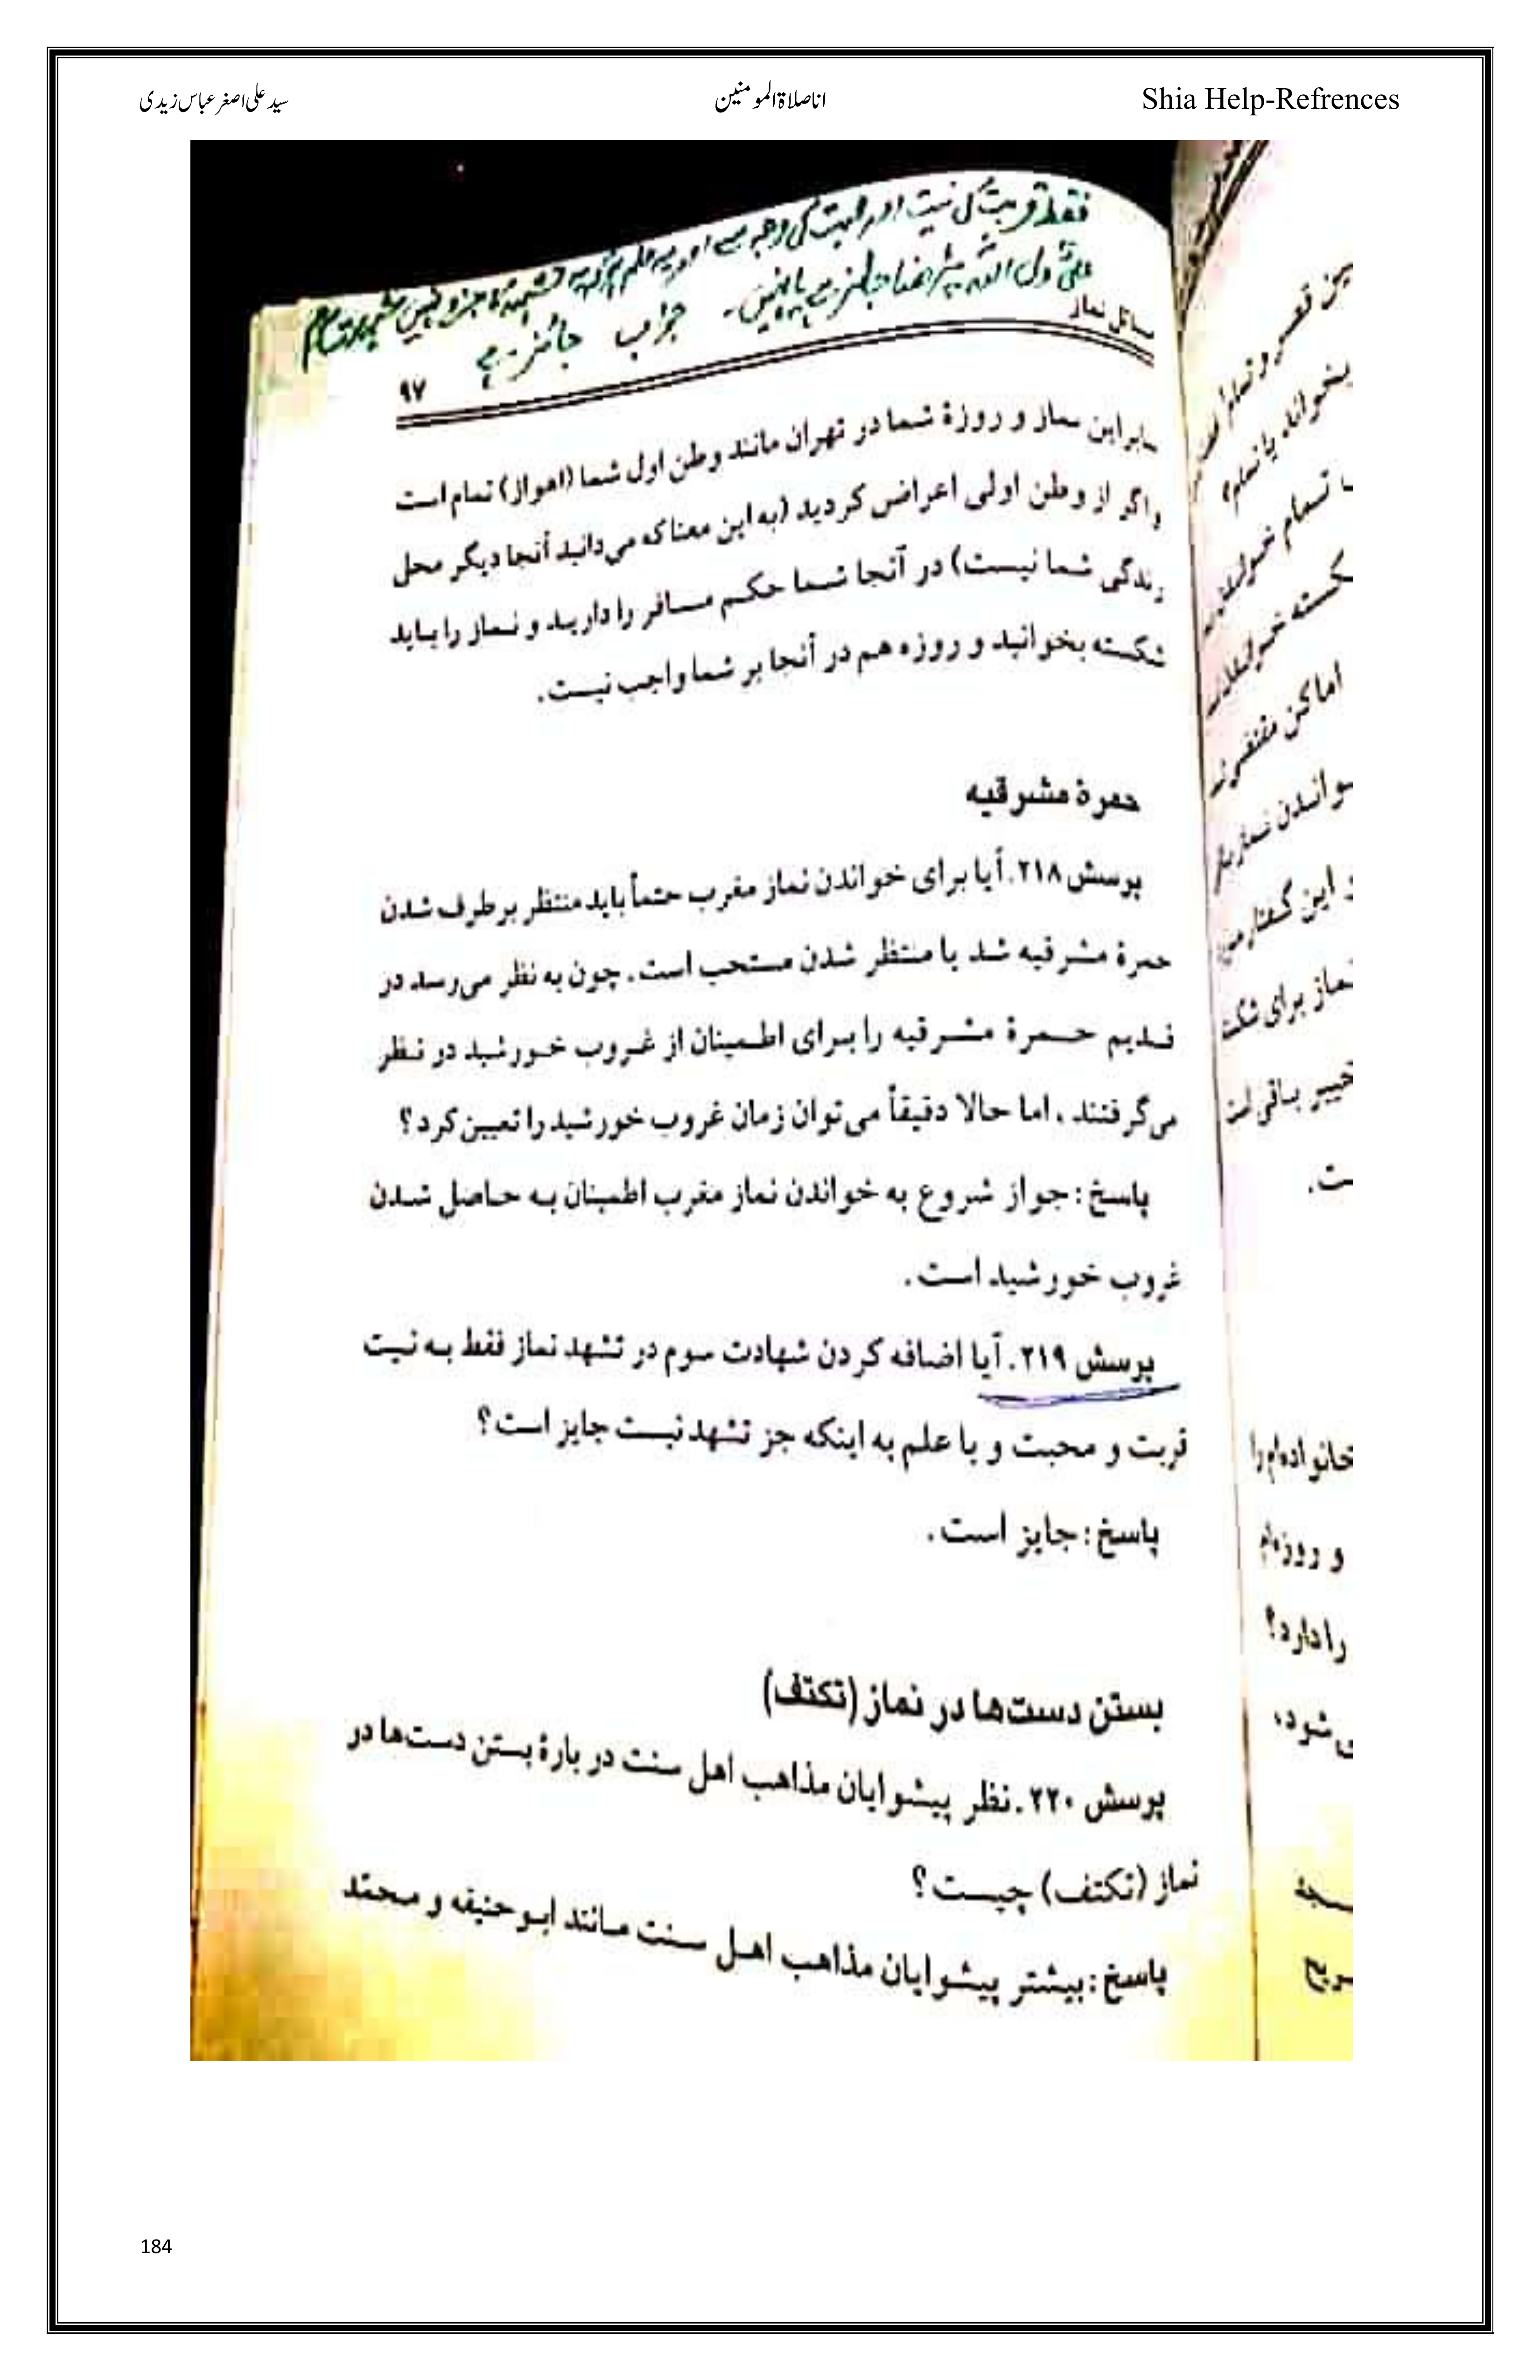 سید علی اصغر عباس زیدی
اناصلاۃ المومنین
Shia Help-Refrences
فقط قربت کی نیت اور محبت کی وجہ سے اور یہ علم
علیؑ ولی اللہ پڑھنا جائز ہے یا نہیں۔ جواب جائز ہے
مسائل نماز
۹۷
بنابراین نماز و روزهٔ شما در تهران مانند وطن اول شما (اهواز) تمام است
و اگر از وطن اولی اعراض کردید (به این معنا که می‌دانید آنجا دیگر محل
زندگی شما نیست) در آنجا شما حکم مسافر را دارید و نماز را باید
شکسته بخوانید و روزه هم در آنجا بر شما واجب نیست.
حمرهٔ مشرقیه
پرسش ۲۱۸. آیا برای خواندن نماز مغرب حتماً باید منتظر برطرف شدن
حمرهٔ مشرقیه شد یا منتظر شدن مستحب است. چون به نظر می‌رسد در
قدیم حمرهٔ مشرقیه را برای اطمینان از غروب خورشید در نظر
می‌گرفتند، اما حالا دقیقاً می‌توان زمان غروب خورشید را تعیین کرد؟
پاسخ: جواز شروع به خواندن نماز مغرب اطمینان به حاصل شدن
غروب خورشید است.
پرسش ۲۱۹. آیا اضافه کردن شهادت سوم در تشهد نماز فقط به نیت
قربت و محبت و با علم به اینکه جز تشهد نیست جایز است؟
پاسخ: جایز است.
بستن دست‌ها در نماز (تکتف)
پرسش ۲۲۰. نظر پیشوایان مذاهب اهل سنت دربارهٔ بستن دست‌ها در
نماز (تکتف) چیست؟
پاسخ: بیشتر پیشوایان مذاهب اهل سنت مانند ابوحنیفه و محمّد
بخواند یا تمام؟
تمام
اماکن
این
نماز برای
ست.
خانواده‌ام را
و روزه‌ام
را دارد؟
184